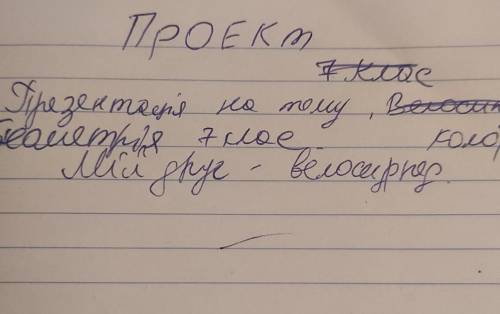 Проект
7 клас
Презентація на тему
Геометрія 7 клас
Мій друг - велосипед.